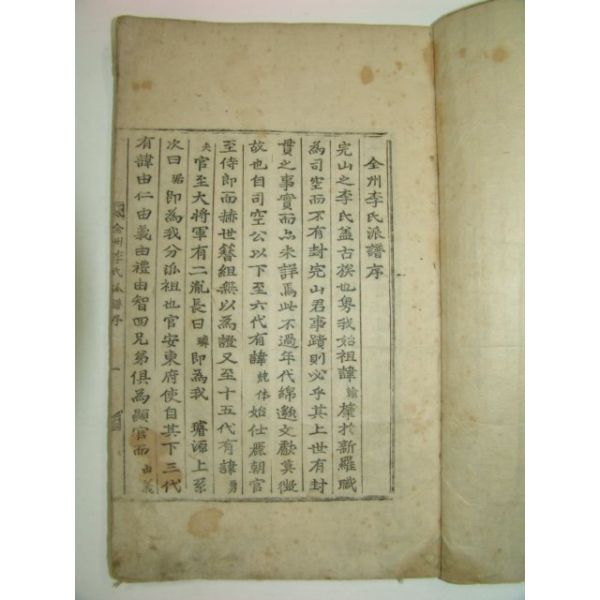 全州李氏派譜序
完山之李氏盖古族也粤我始祖諱翰 籍於新羅職
為司空而不有封完山君事蹟則必乎其上世有封
貫之事實而点未詳焉此不過年代綿邈文獻莫徵
故也自司空公以下至六代有諱兢休始仕麗朝官
至侍郎而赫世簪組無以為證又至十五代有諱勇
夫官至大將軍有二胤長曰璘即為我 璿源上系
次曰琚即為我分派祖也官安東府使自其下三代
有諱由仁由義由禮由智四兄弟俱為顯官而由義
全州李氏派譜序
一